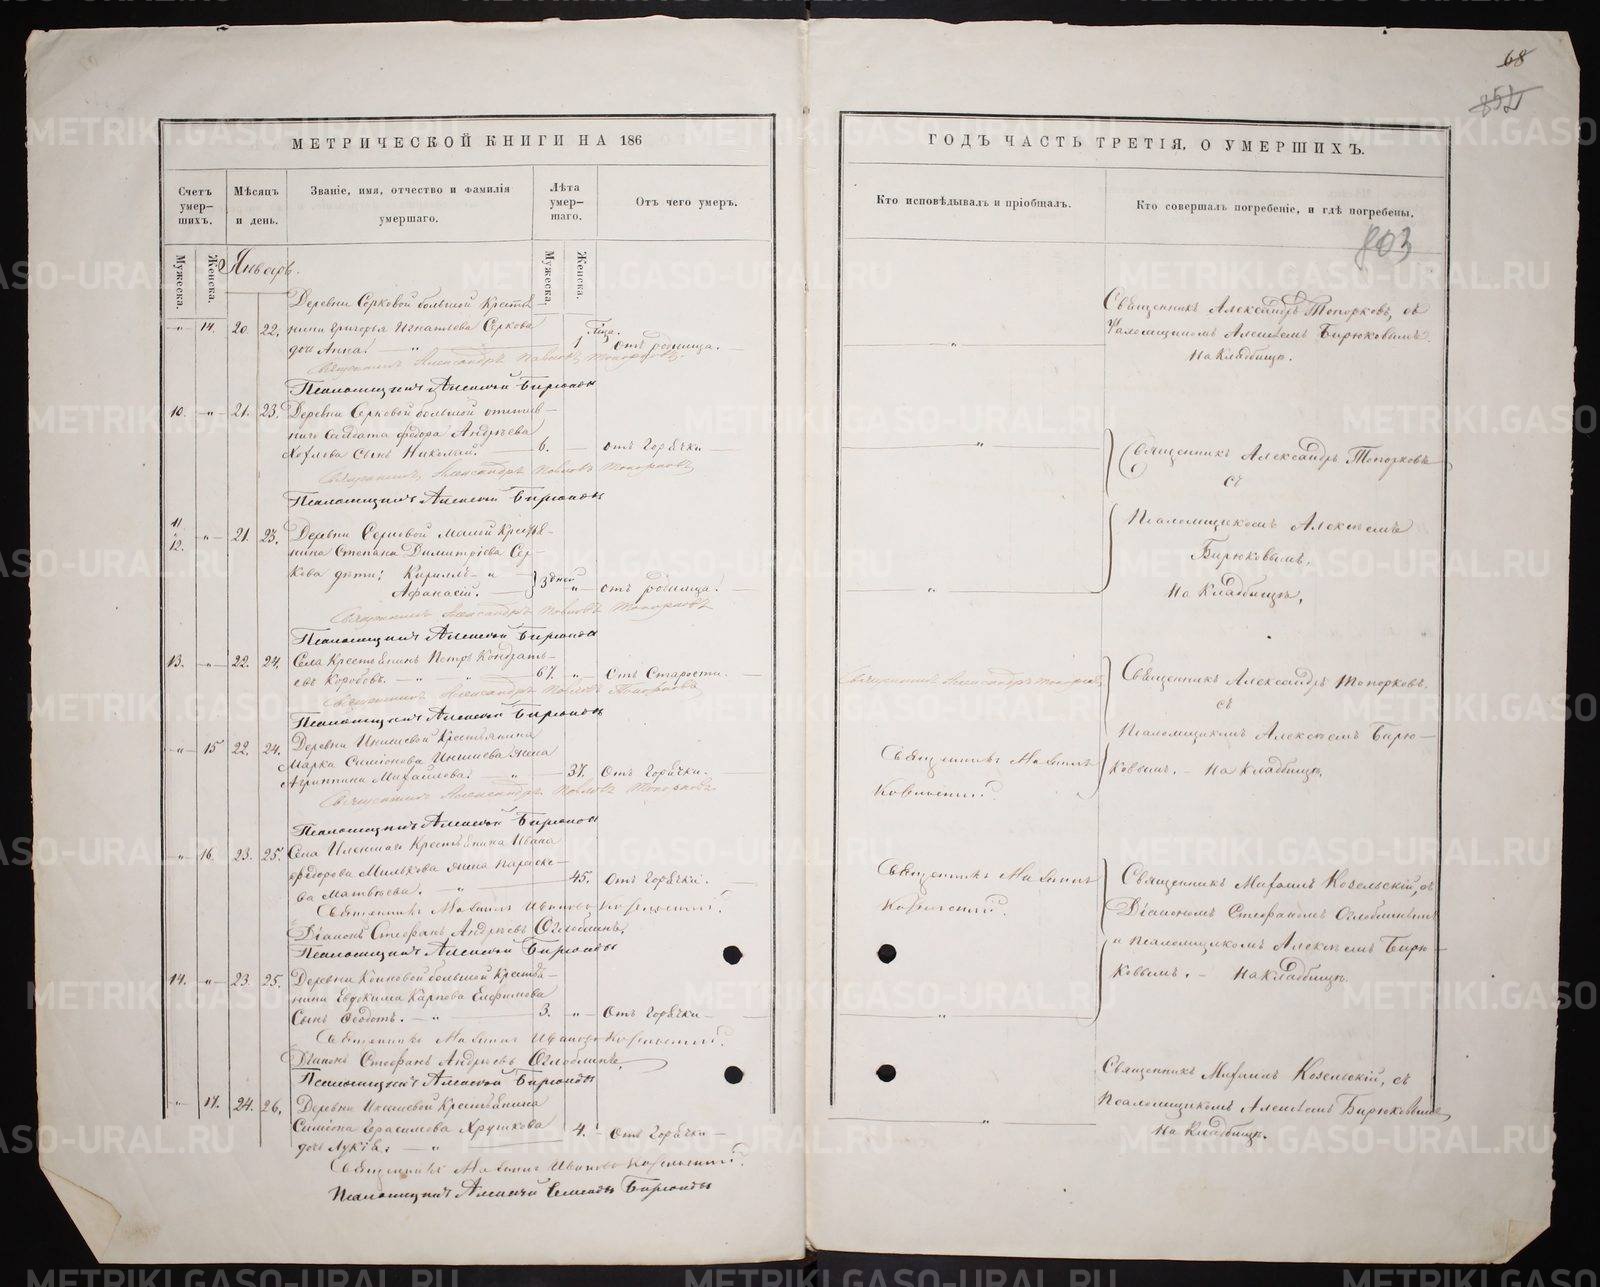 68
852
МЕТРИЧЕСКОЙ КНИГИ НА 186
ГОДЪ ЧАСТЬ ТРЕТІЯ, О УМЕРШИХЪ.
Счетъ умер-шихъ.
Мѣсяцъ и день.
Званіе, имя, отчество и фамилія умершаго.
Лѣта умер-шаго.
Отъ чего умеръ.
Кто исповѣдывалъ и пріобщалъ.
Кто совершалъ погребеніе, и гдѣ погребены.
803
Мужеска.
Женска.
Мужеска.
Женска.
Январь.
Деревни Серковой большой Крестья
„ 14. 20. 22. нина Григорья Игнатьева Серкова
дочь Анна. „ 1 Года. Отъ родимца.
Священникъ Александръ Павловъ Топорковъ
Псаломщикъ Алексей Бирюковъ
Священникъ Александръ Топорковъ, съ
Псаломщикомъ Алексѣемъ Бирюковымъ.
На Кладбищѣ.
10. „ 21. 23. Деревни Серковой большой отстав-
наго Солдата Федора Андрѣева
Сынъ Николай. 6. отъ Горячки
Священникъ Александръ Павловъ Топорковъ
Псаломщикъ Алексей Бирюковъ
Священникъ Александръ Топорковъ
съ
11. 12. „ 21. 23. Деревни Серковой Малой Крестья-
нина Степана Димитріева Сер-
кова дѣти: Кириллъ „
Афанасій. 3 дней „ отъ родимца.
Священникъ Александръ Павловъ Топорковъ
Псаломщикъ Алексей Бирюковъ
Псаломщикомъ Алексѣемъ
Бирюковымъ,
На Кладбищѣ,
13. „ 22. 24. Села Крестьянинъ Петръ Кондрать-
евъ Коробовъ. „ „ 67. „ Отъ Старости.
Священникъ Александръ Павловъ Топорковъ
Псаломщикъ Алексей Бирюковъ
Священникъ Александръ Топорковъ
Священникъ Александръ Топорковъ
съ
Псаломщикомъ Алексѣемъ Бирю-
ковымъ. - На Кладбищѣ.
„ 15 22. 24. Деревни Икшевой Крестьянина
Марка Симіонова жена
Агриппина Михайлова. „ 37. Отъ Горячки.
Священникъ Александръ Павловъ Топорковъ
Псаломщикъ Алексей Бирюковъ
Священникъ Михаилъ
Козельский.
„ 16. 23. 25. Села Крестьянина Ивана
Федорова Милькова жена Параске-
ва Матвѣева. „ 45. Отъ Горячки.
Священникъ Михаилъ Ивановъ Козельский.
Діаконъ Стефанъ Андрѣевъ Оглоблинъ,
Псаломщикъ Алексей Бирюковъ
Священникъ Михаилъ
Козельский.
Священникъ Михаилъ Козельскій, съ
Діакономъ Стефаномъ Оглоблинымъ
и псаломщикомъ Алексѣемъ Бирю-
ковымъ. - На Кладбищѣ.
14. „ 23. 25. Деревни большой Крестья-
нина Евдокима Карпова Елфимова
Сынъ Ѳеодотъ. „ 3. „ Отъ Горячки
Священникъ Михаилъ Ивановъ Козельский.
Діаконъ Стефанъ Андрѣевъ Оглоблинъ,
Псаломщикъ Алексей Бирюковъ
„ 17. 24. 26. Деревни Икшевой Крестьянина
Симіона Герасимова Хрушкова
дочь Лукія. „ 4. Отъ Горячки
Священникъ Михаилъ Ивановъ Козельский.
Псаломщикъ Алексей Бирюковъ
Священникъ Михаилъ Козельскій, съ
Псаломщикомъ Алексѣемъ Бирюковымъ
На Кладбищѣ.
METRIKI.GASO-URAL.RU